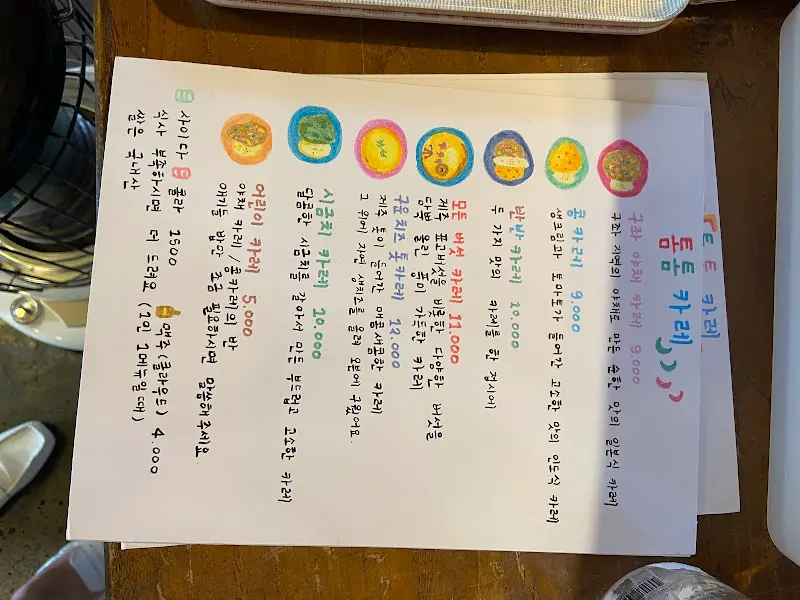 톰톰 카레
구좌 야채 카레 9.000
구좌 지역의 야채로 만든 순한 맛의 일본식 카레
콩 카레 9.000
생크림과 토마토가 들어간 고소한 맛의 인도식 카레
반반 카레 10.000
두 가지 맛의 카레를 한 접시에
모든 버섯 카레 11.000
제주 표고버섯을 비롯한 다양한 버섯을
듬뿍 올린 풍미 가득한 카레
구운치즈 톳카레 12.000
제주 톳이 들어간 매콤새콤한 카레
그 위에 자연 생치즈를 올려 오븐에 구웠어요.
시금치 카레 10.000
달콤한 시금치를 갈아서 만든 부드럽고 고소한 카레
어린이 카레 5.000
야채 카레 / 콩카레의 반
애기들 밥만 조금 필요하시면 말씀해주세요.
사이다 콜라 1500 맥주(클라우드) 4.000
식사 부족하시면 더 드려요 (1인 1메뉴일 때)
쌀은 국내산